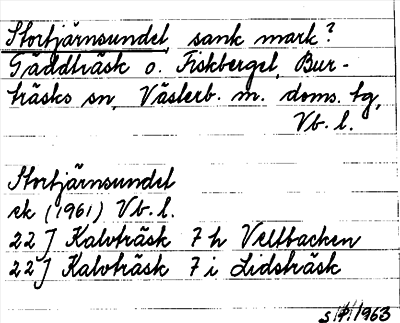 Stortjärnsundet, sank mark?
Gäddträsk o. Fiskberget, Bur-
träsks sn, Västerb. m. doms. tg,
Vb. l.
Stortjärnsundet
ek (1961) Vb. l.
22 J Kalvträsk 7 h Vettbacken
22 J Kalvträsk 7 i Lidsträsk
1963